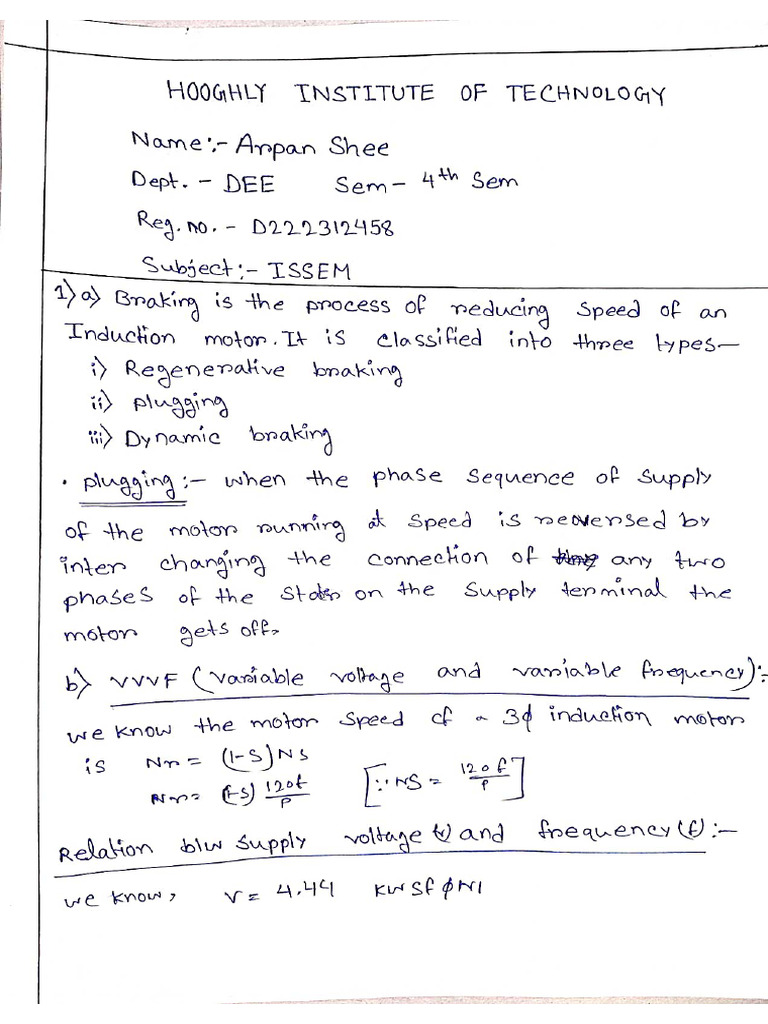 HOOGHLY INSTITUTE OF TECHNOLOGY
Name:- Arpan Shee
Dept. - DEE Sem- 4th Sem
Reg. no. - D222312458
Subject:- ISSEM
1) a) Braking is the process of reducing speed of an
Induction motor. It is classified into three types-
i) Regenerative braking
ii) plugging
iii) Dynamic braking
• plugging:- when the phase sequence of supply
of the motor running at speed is reversed by
inter changing the connection of any two
phases of the stator on the supply terminal the
motor gets off.
b) VVVF (variable voltage and variable frequency):-
we know the motor speed of a 3ϕ induction motor
is Nr = (1-S)NS
Nr = (1-S) 120f/P [∵ NS = 120f/P]
Relation b/w supply voltage (v) and frequency (f):-
we know, V = 4.44 KWSfϕN1